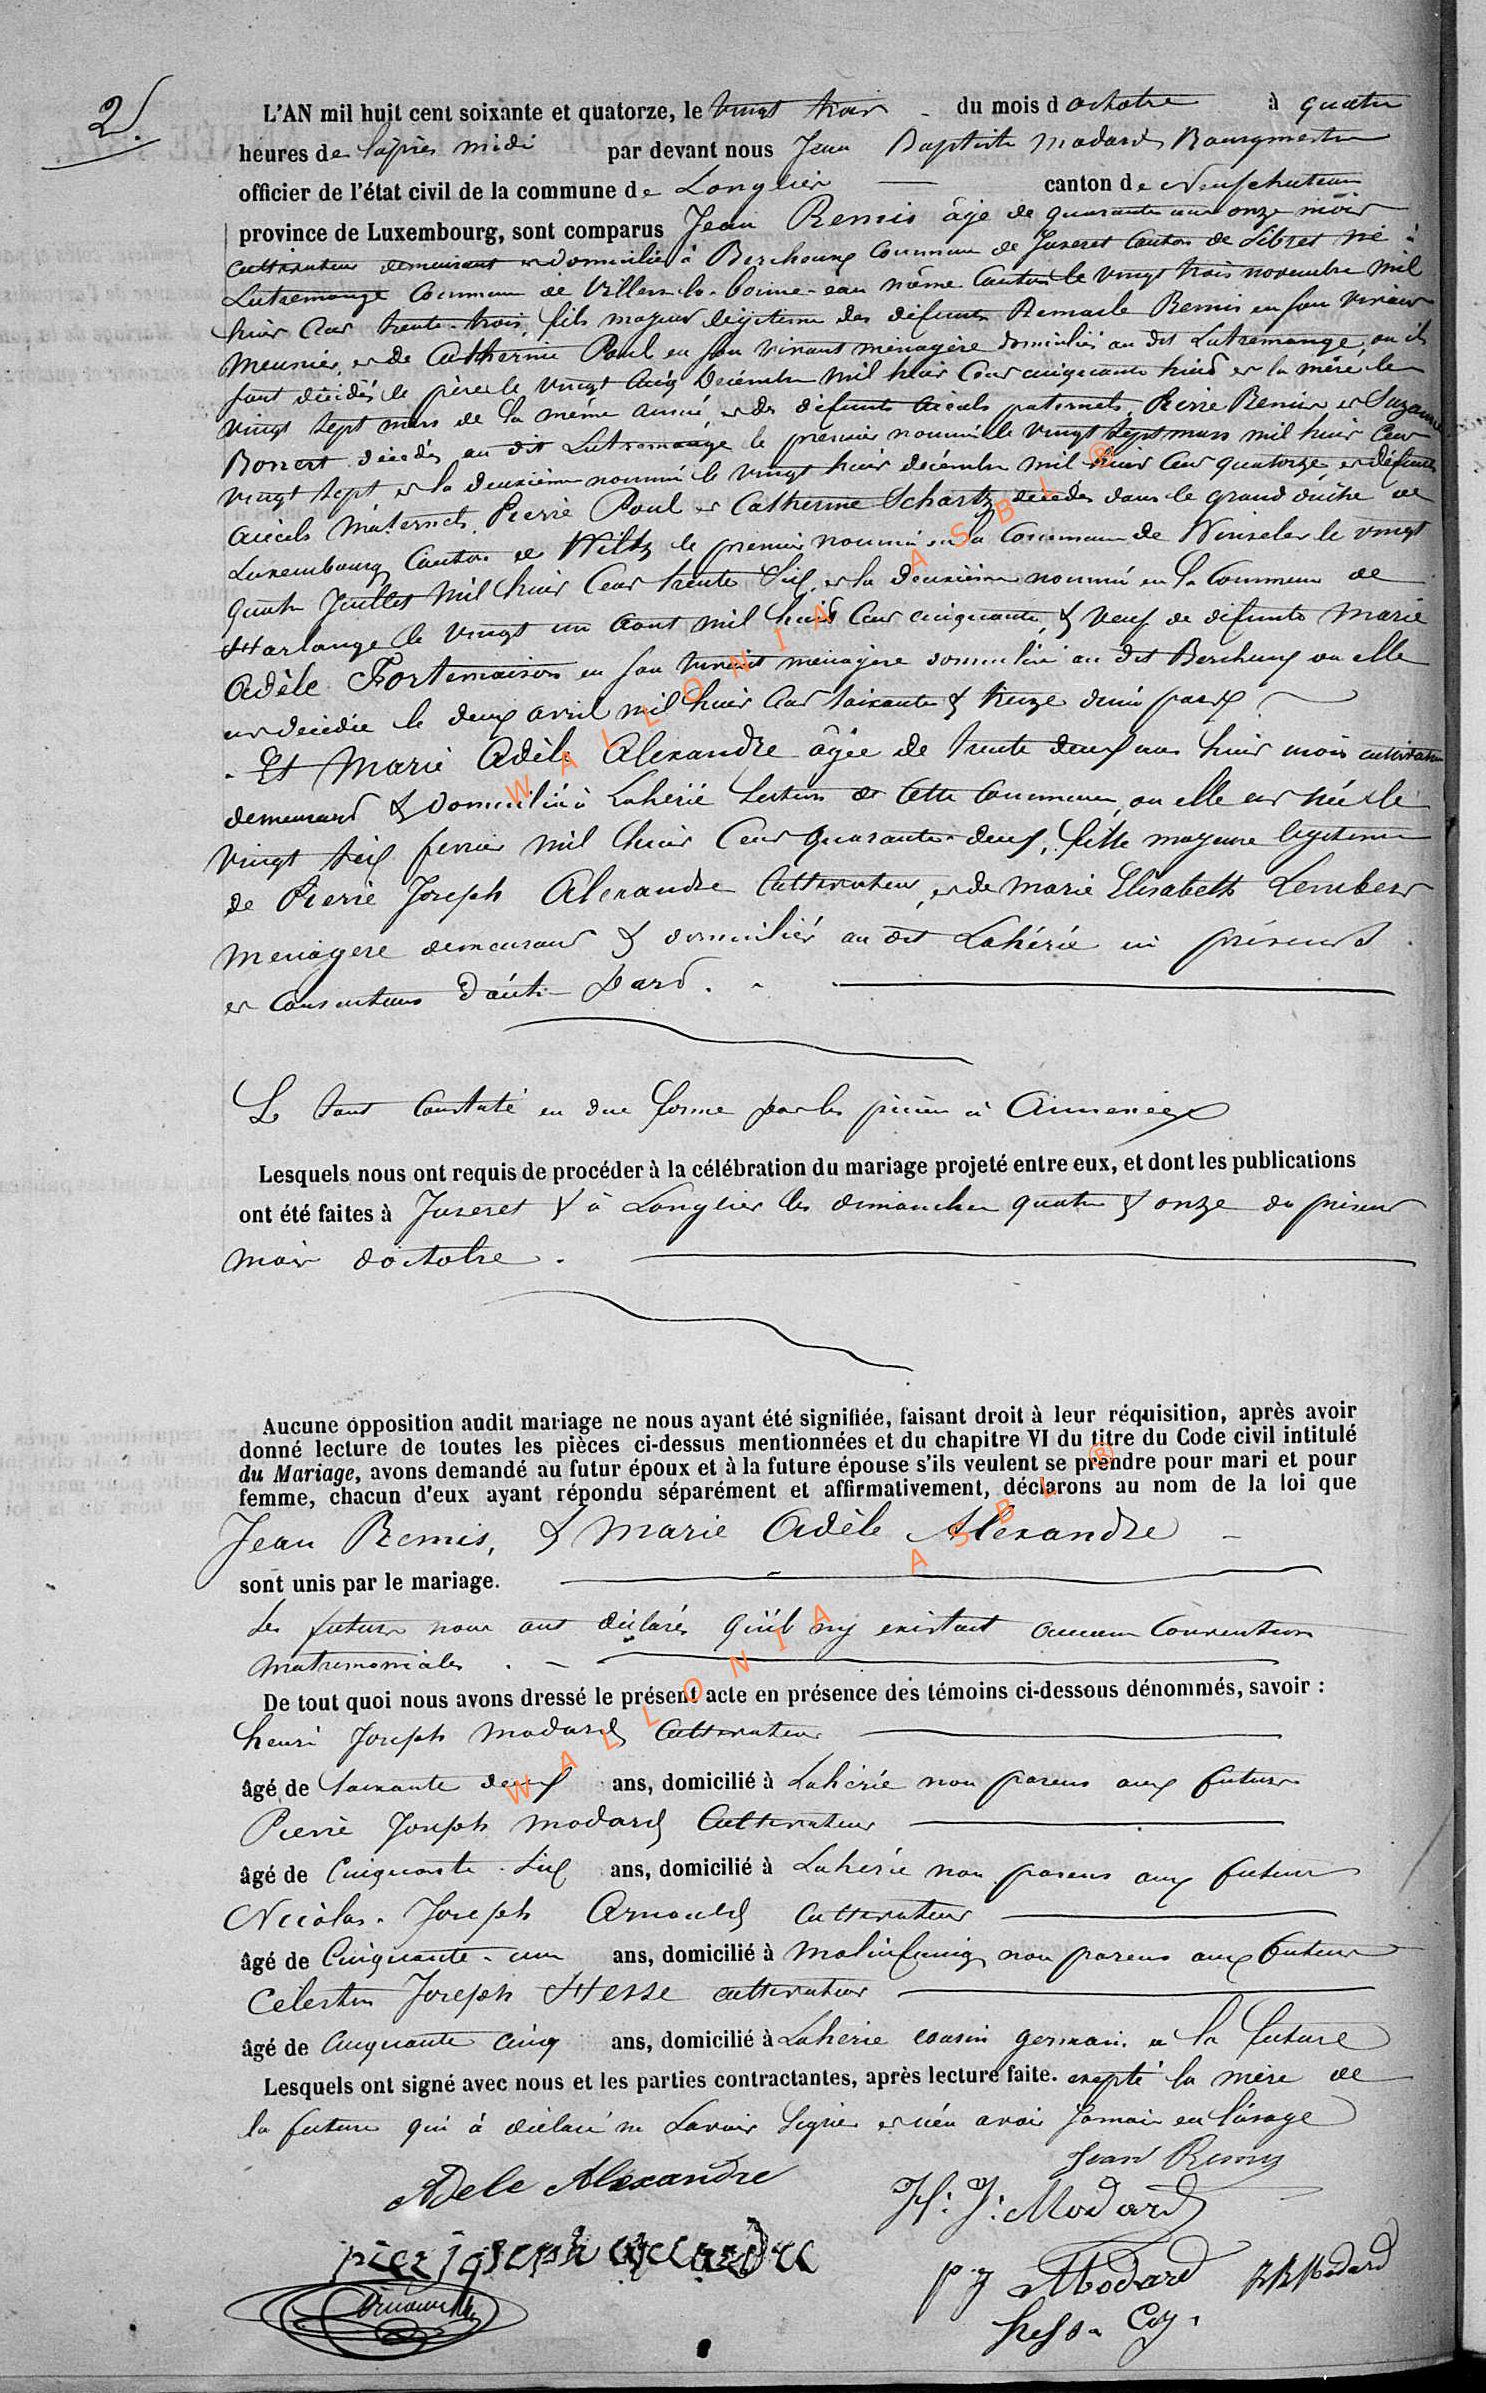 2.
L'AN mil huit cent soixante et quatorze, le vingt trois du mois d'octobre à quatre
heures de l'après midi par devant nous Jean Baptiste Modard Bourgmestre
officier de l'état civil de la commune de Longlier canton de Neufchateau
province de Luxembourg, sont comparus Jean Remis âgé de quarante ans onze mois
cultivateur demeurant et domicilié à Bercheux Commune de Juseret Canton de Sibret né à
Lutremange Commune de Villers-la-bonne-eau même Canton le vingt trois novembre mil
huit cent trente-trois, fils majeur légitime des défunts Remacle Remis en son vivant
meunier, et de Catherine Poul en son vivant ménagère domiciliés au dit Lutremange, où ils
sont décédés le père le vingt cinq Décembre mil huit cent cinquante huit et la mère le
vingt sept mars de la même année et des défunts aieuls paternels, Pierre Remis et Suzanne
Bonert décédés au dit Lutremange le premier nommé le vingt sept mars mil huit cent
vingt sept et la deuxième nommé le vingt huit décembre mil huit cent quatorze et défunts
aieuls maternels Pierre Poul et Catherine Schartz décédés dans le grand duché de
Luxembourg Canton de Wiltz le premier nommé en la Commune de Winseler le vingt
quatre Juillet mil huit cent trente six, et la deuxième nommé en la Commune de
Harlange le vingt un aout mil huit cent cinquante, & veuf de défunte Marie
Adèle Fortemaison en son vivant ménagère domiciliée au dit Bercheux où elle
est décédée le deux avril mil huit cent soixante & treize d'une part
Et Marie Adèle Alexandre âgée de trente deux ans huit mois cultivatrice
demeurant & domiciliée à Lahérie Section de Cette Commune, où elle est née le
vingt six fevrier mil huit Cent quarante-deux, fille majeure légitime
de Pierre Joseph Alexandre Cultivateur, et de Marie Elisabeth Lembert
menagere demeurant & domiciliés au dit Lahérie ici présents
et consentans d'autre Part.
Le tout Constaté en due forme par les pièces ci Annexées
Lesquels nous ont requis de procéder à la célébration du mariage projeté entre eux, et dont les publications
ont été faites à Juseret & à Longlier les dimanches quatre & onze du présent
mois d'octobre.
Aucune opposition audit mariage ne nous ayant été signifiée, faisant droit à leur réquisition, après avoir
donné lecture de toutes les pièces ci-dessus mentionnées et du chapitre VI du titre du Code civil intitulé
du Mariage, avons demandé au futur époux et à la future épouse s'ils veulent se prendre pour mari et pour
femme, chacun d'eux ayant répondu séparément et affirmativement, déclarons au nom de la loi que
Jean Remis, & Marie Adèle Alexandre
sont unis par le mariage.
Les futurs nous ont déclarés qu'il n'y existait aucune Convention
matrimoniales.
De tout quoi nous avons dressé le présent acte en présence des témoins ci-dessous dénommés, savoir :
henri Joseph Modard Cultivateur
âgé de Soixante deux ans, domicilié à Lahérie non parent aux futurs
Pierre Joseph Modard Cultivateur
âgé de Cinquante-six ans, domicilié à Lahérie non parens aux futurs
Nicolas-Joseph Arnould Cultivateur
âgé de Cinquante-un ans, domicilié à Molinfaing non parens aux futurs
Célestin Joseph Hesse cultivateur
âgé de Cinquante cinq ans, domicilié à Lahérie cousin germain à la future
Lesquels ont signé avec nous et les parties contractantes, après lecture faite. excepté la mère de
la future qui à déclaré ne Savoir Signer et n'en avoir Jamais eu l'usage
Jean Remis
Adele Alexandre H. J. Modard
pier joseph alexandre
P J Modard J B Modard
Arnould
hesse Cej.
WALLONIA ASBL ®
WALLONIA ASBL ®